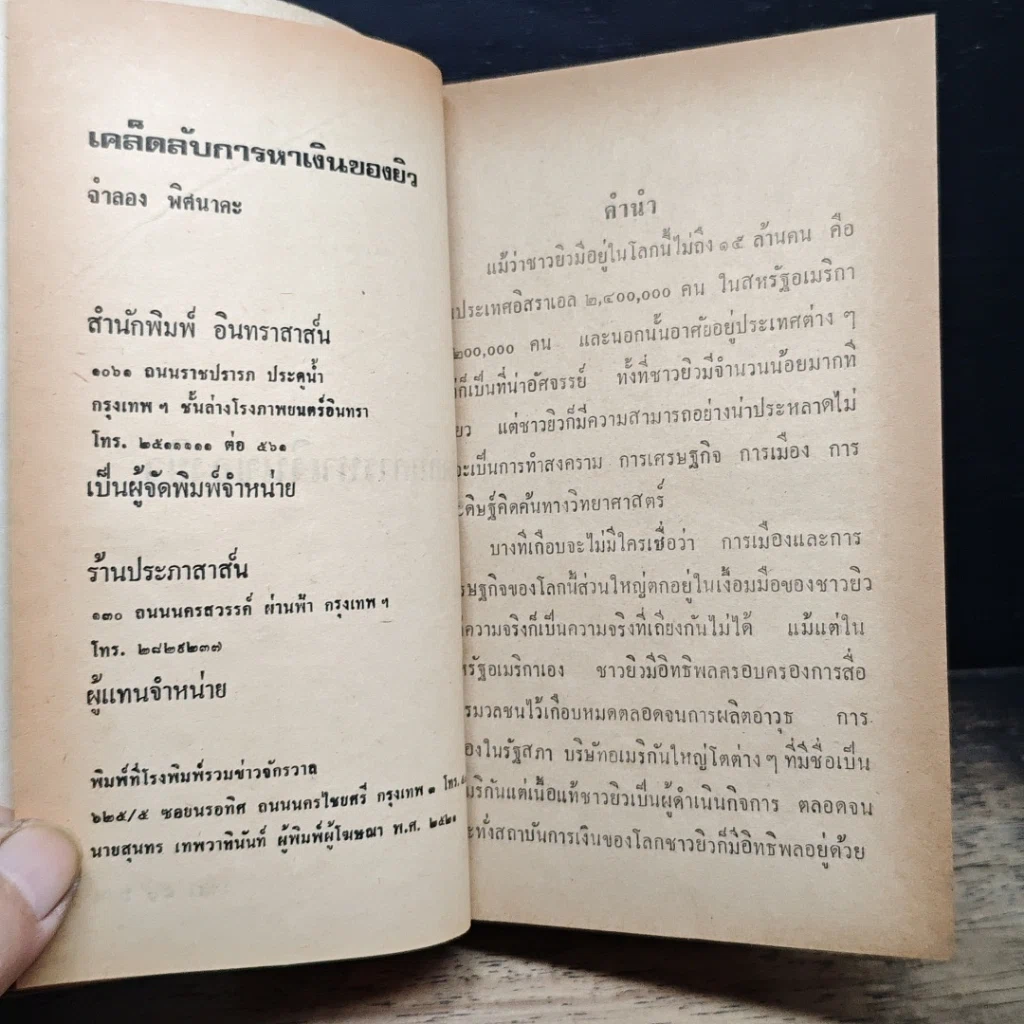 เคล็ดลับการหาเงินของยิว
จำลอง พิศนาคะ
สำนักพิมพ์ อินทราสาส์น
๑๐๖๑ ถนนราชปรารภ ประตูน้ำ
กรุงเทพ ฯ ชั้นล่างโรงภาพยนตร์อินทรา
โทร. ๒๕๑๑๑๑๑ ต่อ ๕๖๑
เป็นผู้จัดพิมพ์จำหน่าย
ร้านประภาสาส์น
๑๓๐ ถนนนครสวรรค์ ผ่านฟ้า กรุงเทพ ฯ
โทร. ๒๘๒๙๒๓๗
ผู้แทนจำหน่าย
พิมพ์ที่โรงพิมพ์รวมข่าวจักรวาล
๖๒๕/๕ ซอยนรอทิศ ถนนนครไชยศรี กรุงเทพ ๓ โทร.
นายสุนทร เทพวาทินันท์ ผู้พิมพ์ผู้โฆษณา พ.ศ. ๒๕๒๑
คำนำ
แม้ว่าชาวยิวมีอยู่ในโลกนี้ไม่ถึง ๑๕ ล้านคน คือ
นประเทศอิสราเอล ๒,๔๐๐,๐๐๐ คน ในสหรัฐอเมริกา
๒๐๐,๐๐๐ คน และนอกนั้นอาศัยอยู่ประเทศต่าง ๆ
ก็เป็นที่น่าอัศจรรย์ ทั้งที่ชาวยิวมีจำนวนน้อยมากที
ยว แต่ชาวยิวก็มีความสามารถอย่างน่าประหลาดไม่
จะเป็นการทำสงคราม การเศรษฐกิจ การเมือง การ
ะดิษฐ์คิดค้นทางวิทยาศาสตร์
บางทีเกือบจะไม่มีใครเชื่อว่า การเมืองและการ
รษฐกิจของโลกนี้ส่วนใหญ่ตกอยู่ในเงื้อมมือของชาวยิว
ความจริงก็เป็นความจริงที่เถียงกันไม่ได้ แม้แต่ใน
หรัฐอเมริกาเอง ชาวยิวมีอิทธิพลครอบครองการสื่อ
รมวลชนไว้เกือบหมดตลอดจนการผลิตอาวุธ การ
องในรัฐสภา บริษัทอเมริกันใหญ่โตต่าง ๆ ที่มีชื่อเป็น
มริกันแต่เนื้อแท้ชาวยิวเป็นผู้ดำเนินกิจการ ตลอดจน
ะทั่งสถาบันการเงินของโลกชาวยิวก็มีอิทธิพลอยู่ด้วย